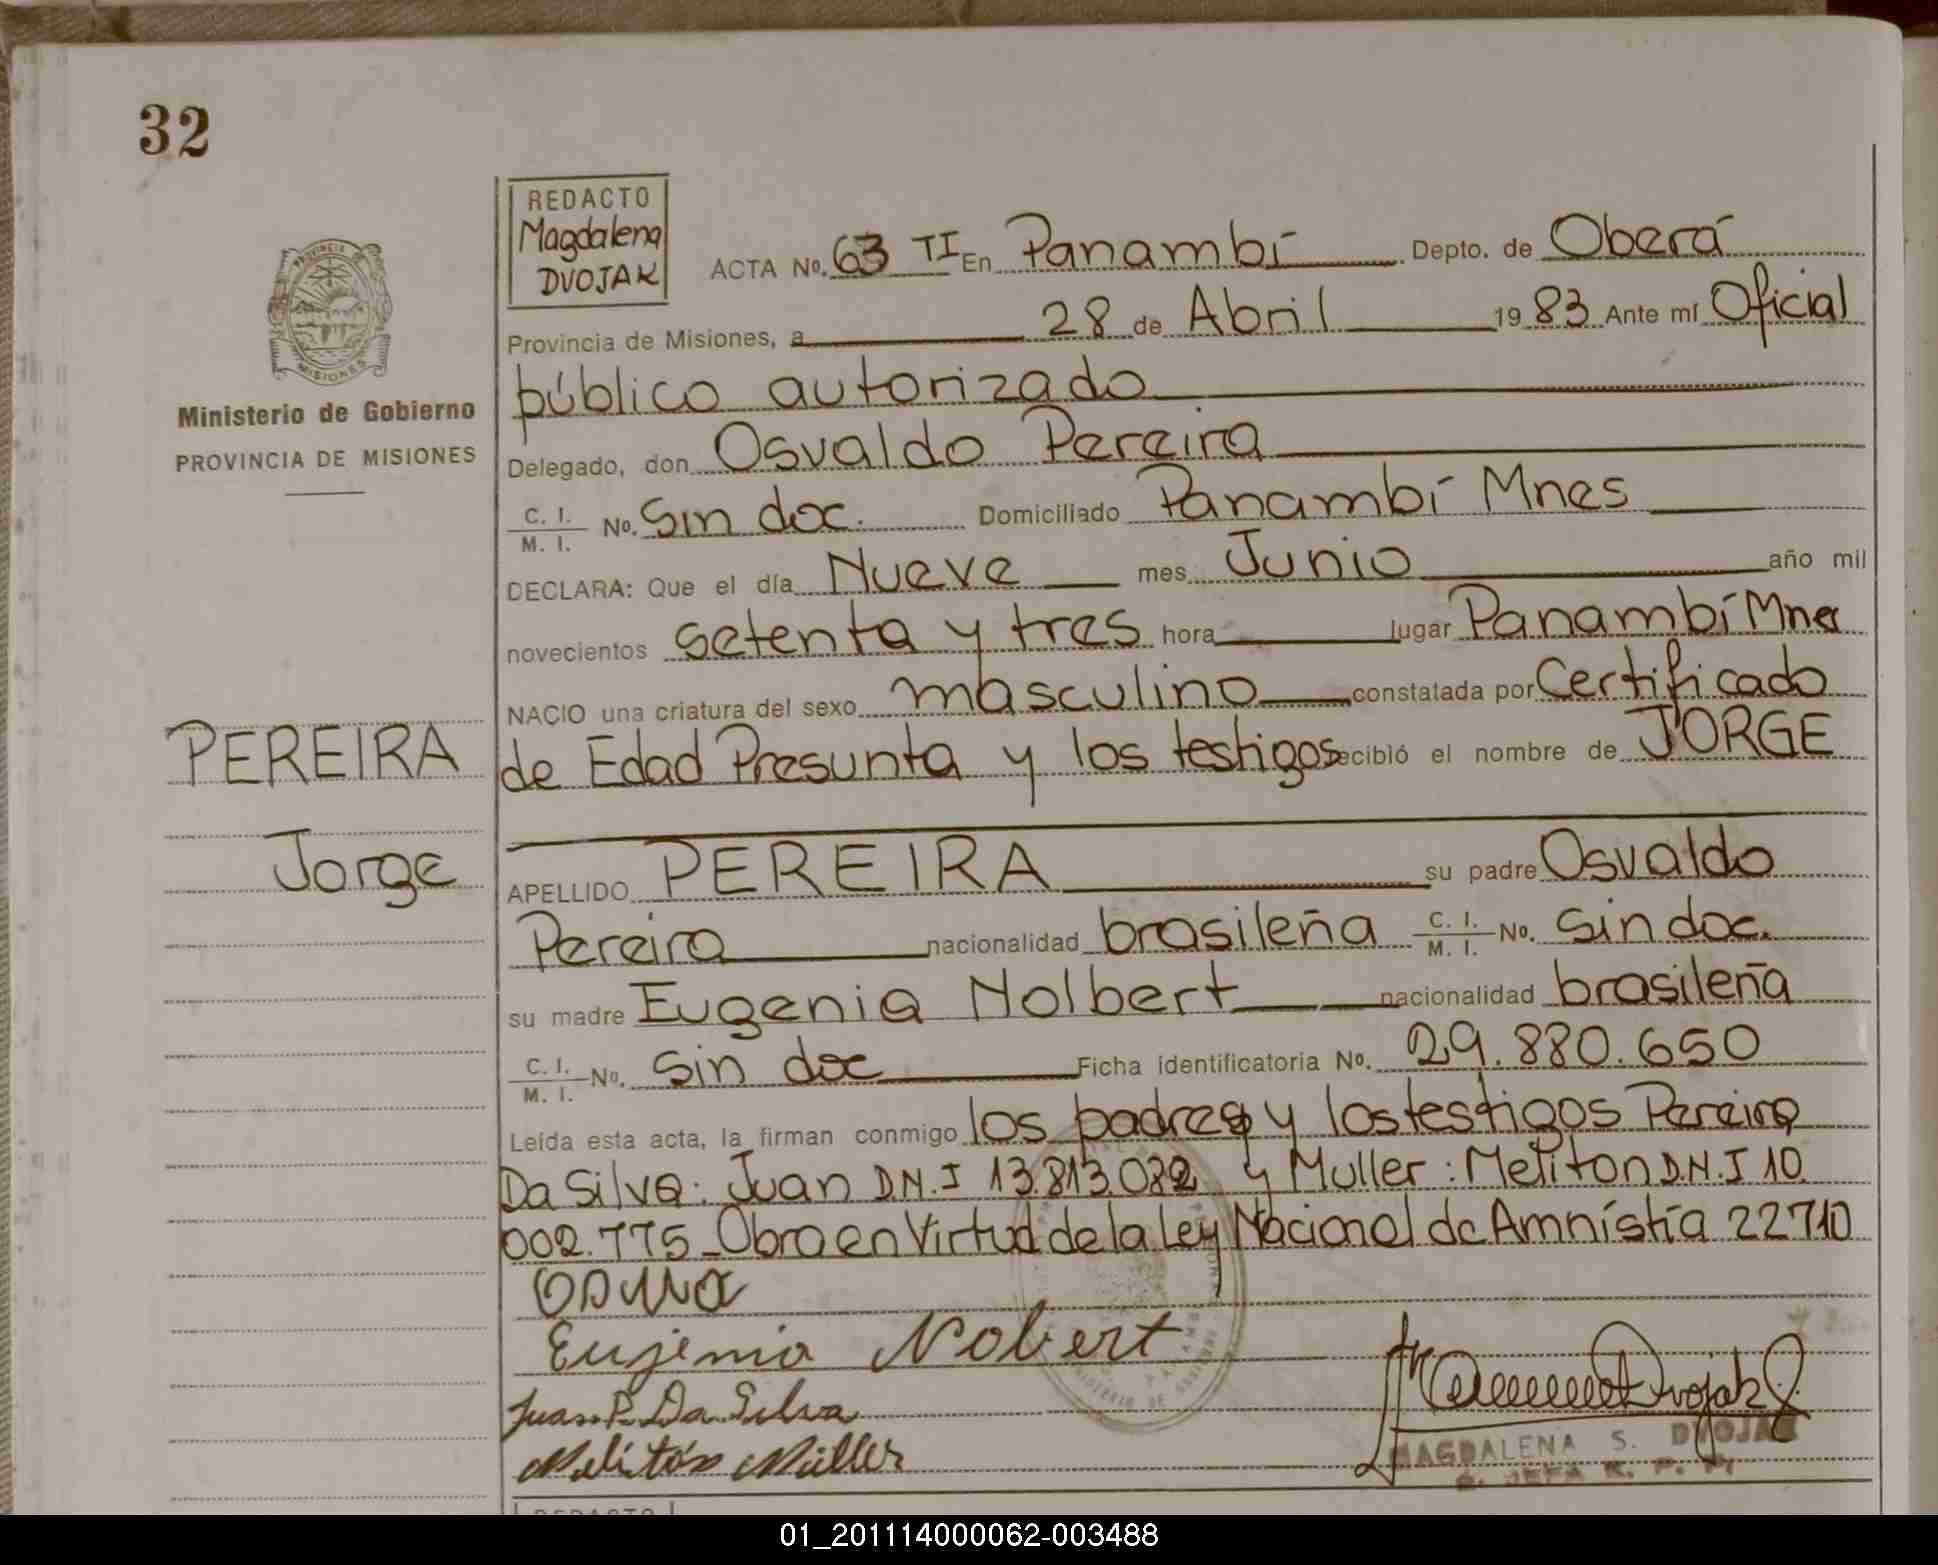 32
REDACTO
Magdalena
DVOJAK
ACTA No. 63 TI En Panambí Depto. de Oberá
Provincia de Misiones, a 28 de Abril 19 83 Ante mí Oficial
público autorizado
PROVINCIA
MISIONES
Ministerio de Gobierno
PROVINCIA DE MISIONES
Delegado, don Osvaldo Pereira
C. I.
M. I. No. Sin doc. Domiciliado Panambí Mnes
DECLARA: Que el día Nueve mes Junio año mil
novecientos setenta y tres hora lugar Panambí Mnes
NACIO una criatura del sexo masculino constatada por Certificado
PEREIRA
de Edad Presunta y los testigos recibió el nombre de JORGE
Jorge
APELLIDO PEREIRA su padre Osvaldo
Pereira nacionalidad brasileña C. I. M. I. No. Sin doc.
su madre Eugenia Nolbert nacionalidad brasileña
C. I.
M. I. No. Sin doc Ficha identificatoria No. 29.880.650
Leída esta acta, la firman conmigo los padres y los testigos Pereira
Da Silva: Juan D.N.I 13.813.082 y Muller: Meliton D.N.I 10.
002.775 Obra en Virtud de la Ley Nacional de Amnistía 22710
Eugenia Nobert
Juan P. Da Silva
Melitón Müller
Dvojak
MAGDALENA S. DVOJAK
S. JEFA R. P. P.
REDACTO
01_201114000062-003488